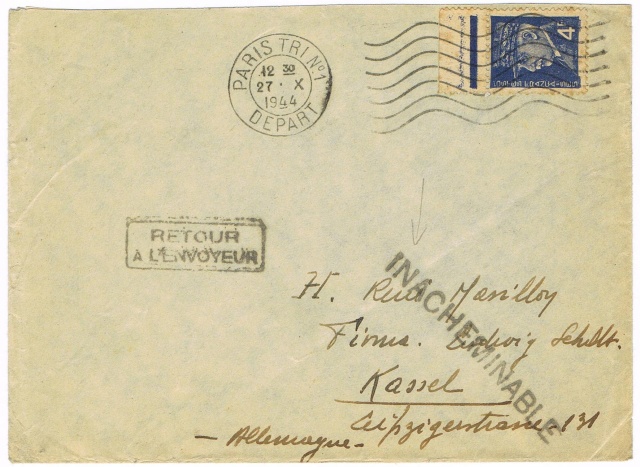 PARIS TRI Nº1
12 30
27 · X
1944
DEPART
4F
RETOUR
À L'ENVOYEUR
INACHEMINABLE
H.
Firma Ludwig Schult.
Kassel
Leipzigerstrasse 131
- Allemagne -